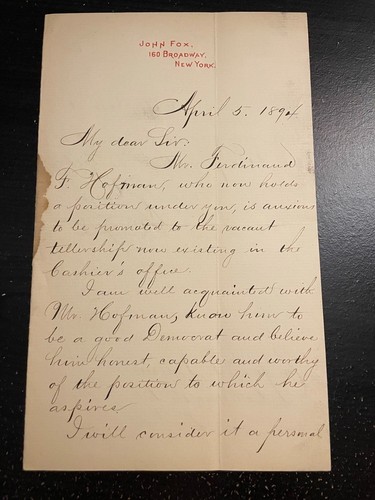 JOHN FOX.
160 BROADWAY,
NEW YORK.
April 5. 1894
My dear Sir:
Mr. Ferdinand
F. Hofman, who now holds
a position under you, is anxious
to be promoted to the vacant
tellership now existing in the
Cashier's office.
I am well acquainted with
Mr. Hofman, know him to
be a good Democrat and believe
him honest, capable and worthy
of the position to which he
aspires.
I will consider it a personal